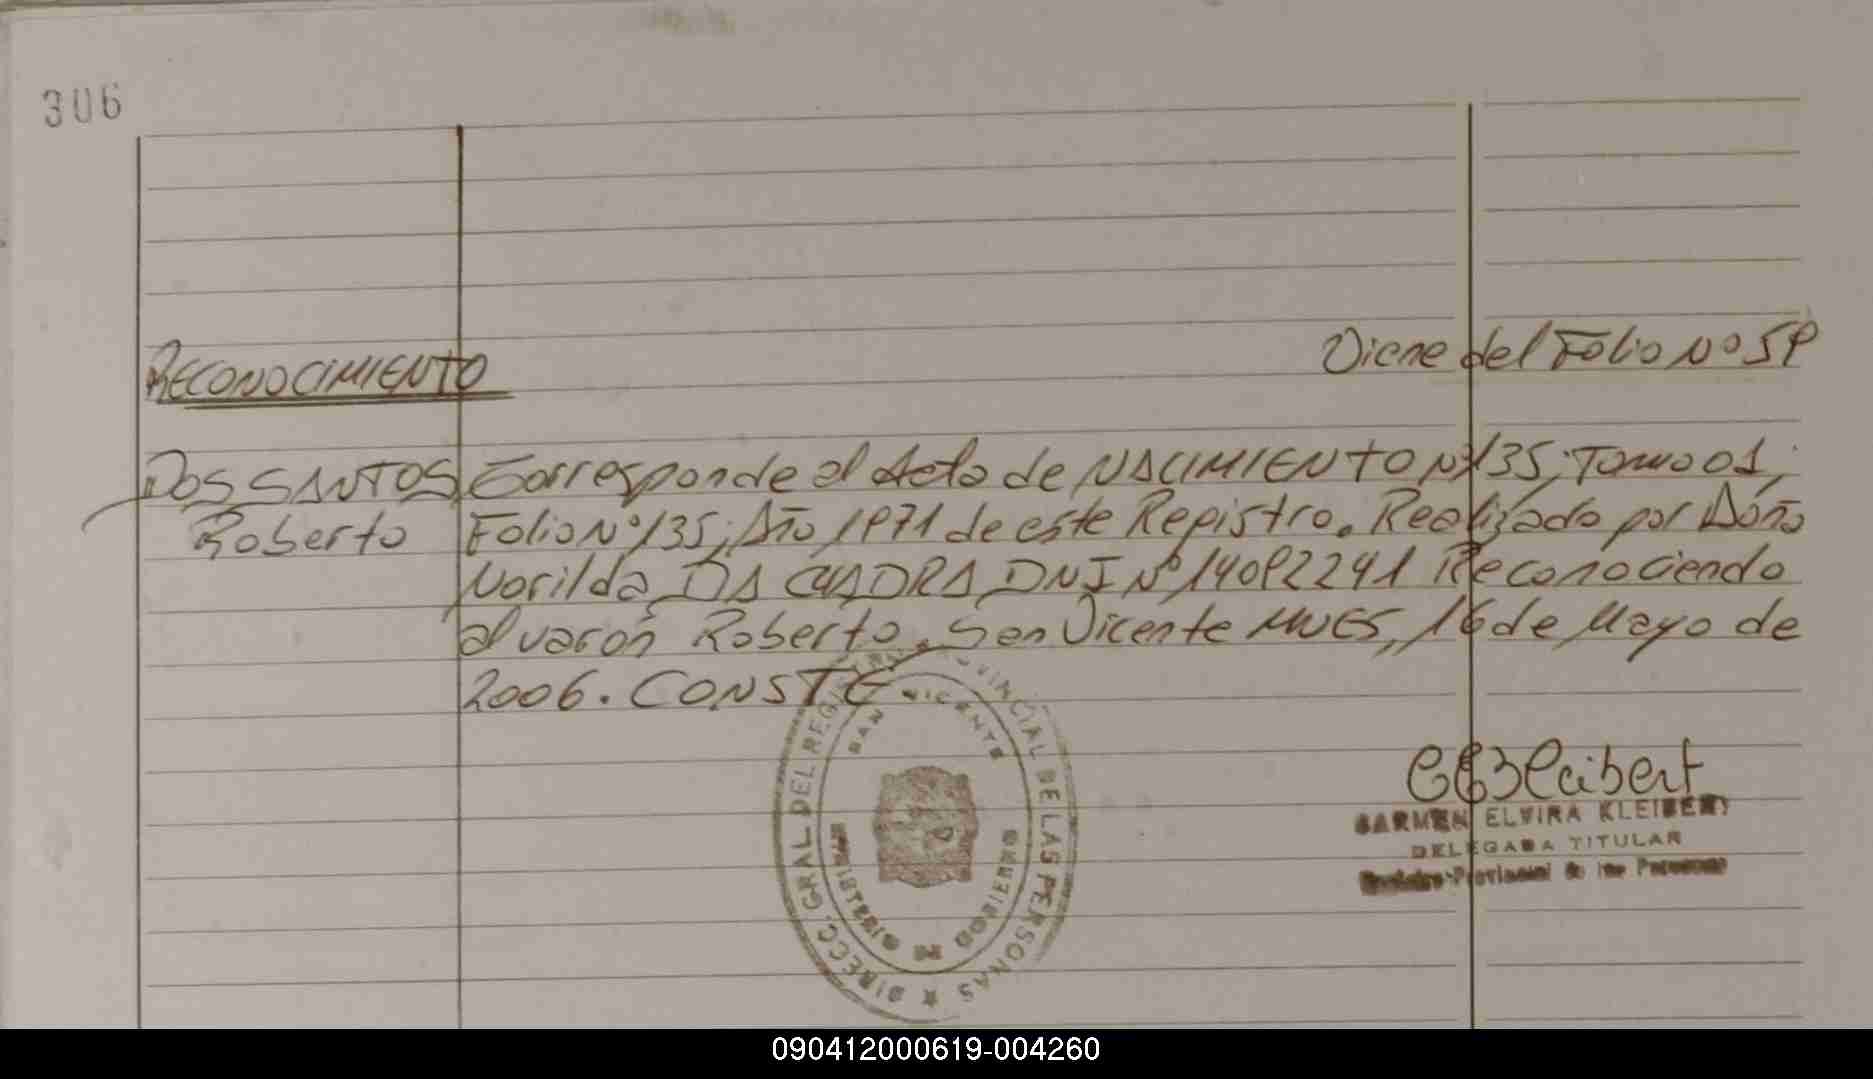 306
RECONOCIMIENTO
Viene del Folio Nº 59
DOS SANTOS
Roberto
Corresponde al Acta de NACIMIENTO Nº 135; Tomo 01;
Folio Nº 135; Año 1971 de este Registro. Realizado por Doña
Norilda DA CUADRA DNI Nº 14092241 Reconociendo
al varón Roberto. San Vicente MNES, 16 de Mayo de
2006. CONSTE
DIRECC. GRAL DEL REGISTRO PROVINCIAL DE LAS PERSONAS
SAN VICENTE
MINISTERIO DE GOBIERNO
CARMEN ELVIRA KLEIBERT
DELEGADA TITULAR
Registro Provincial de las Personas
090412000619-004260